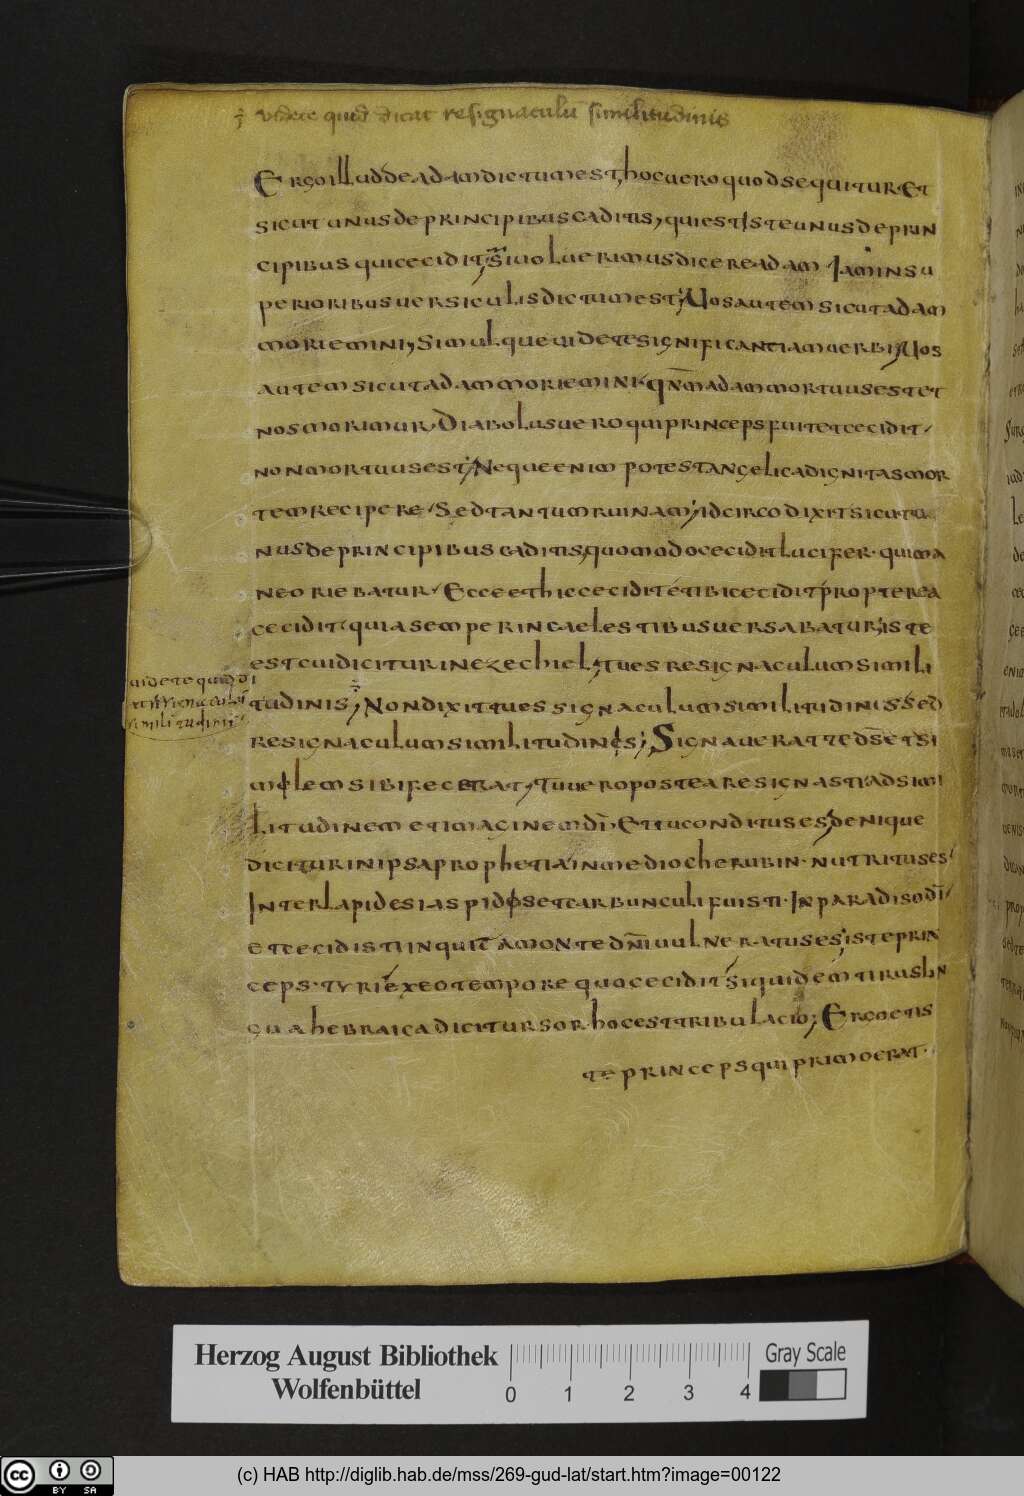 videte quid dicat resignaculū similitudinis
Ergo illud de adam dictum est, hoc uero quod sequitur. Et
sicut unus de principibus caditis, qui est iste unus de prin
cipibus qui cecidit; Si uoluerimus dicere adam Iam in su
perioribus uersiculis dictum est; Uos autem sicut adam
moriemini, Simulque uidete significantiam uerbi; Uos
autem sicut adam moriemini. qnm adam mortuus est et
nos morimur, Diabolus uero qui princeps fuit et cecidit,
non mortuus est; Neque enim potest angelica dignitas mor
tem recipere, Sed tantum ruinam; idcirco dixit sicut u
nus de principibus caditis, quomodo cecidit lucifer. qui ma
ne oriebatur, Ecce et hic cecidit et ibi cecidit, propterea
cecidit, quia semper in caelestibus uersabatur; iste
est cui dicitur in ezechiel; tu es resignaculum simili
uidete quid di
cat resignaculū
similitudinis
tudinis; Non dixit tu es signaculum similitudinis sed
resignaculum similitudinis; Signauerat te ds et si
milem sibi fecerat, Tu uero postea resignasti ad simi
litudinem et imaginem di, Et tu conditus es, denique
dicitur in ipsa prophetia, in medio cherubin. nutritus es,
Inter lapides iaspidis et carbunculi fuisti. In paradiso di,
et cecidisti inquit a monte dni uulneratus es, iste prin
ceps. tyri exeo tempore quo cecidit, siquidem tirus lin
gua hebraica dicitur sor. hoc est tribulacio; Ergo et is
te princeps qui primo erat.
Herzog August Bibliothek
Wolfenbüttel
0 1 2 3 4
Gray Scale
cc BY SA
(c) HAB http://diglib.hab.de/mss/269-gud-lat/start.htm?image=00122